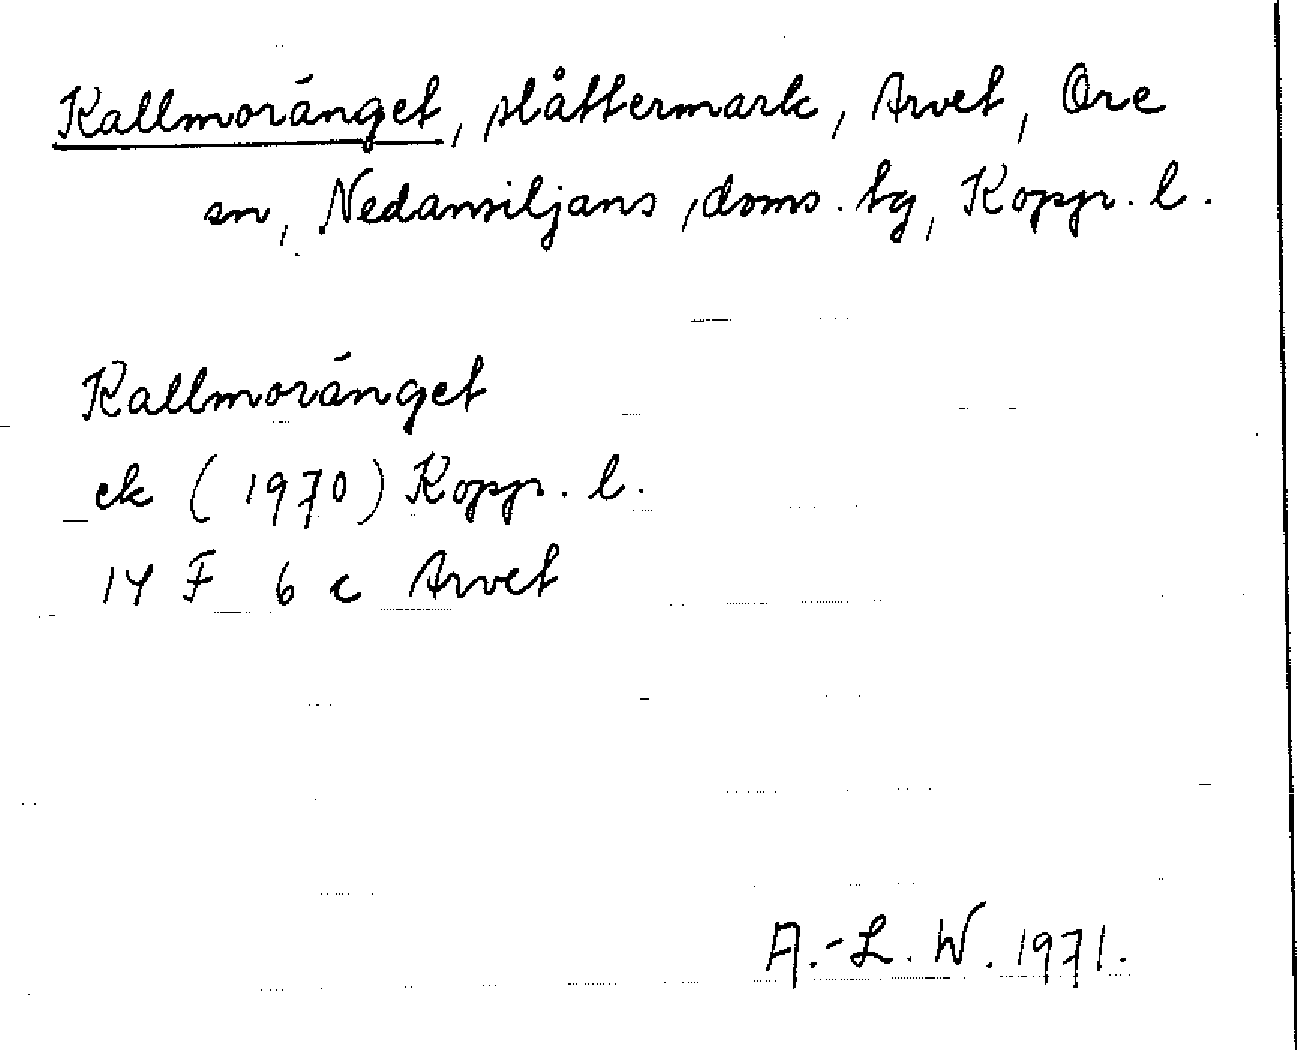 Kallmoränget, slåttermark, Arvet, Ore
sn, Nedansiljans, doms. tg, Kopp. l.
Kallmoränget
ek (1970) Kopp. l.
14 F 6 c Arvet
A.-L. W. 1971.